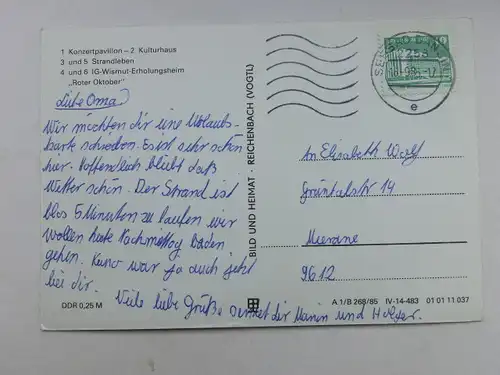 1 Konzertpavillon – 2 Kulturhaus
3 und 5 Strandleben
4 und 6 IG-Wismut-Erholungsheim
„Roter Oktober"
Liebe Oma!
Wir möchten dir eine Urlaubs-
karte schreiben. Es ist sehr schön
hier. Hoffentlich bleibt das
Wetter schön. Der Strand ist
blos 5 Minuten zu laufen wir
wollen heute Nachmittag baden
gehen. war ja auch jetzt
bei dir.
Viele liebe Grüße sendet dir und Holger.
DDR 0,25 M
BILD UND HEIMAT · REICHENBACH (VOGTL)
An Elisabeth Wolf
Grüntalstr 14
Meerane
9612
A 1/B 268/85 IV-14-483 01 01 11 037
e